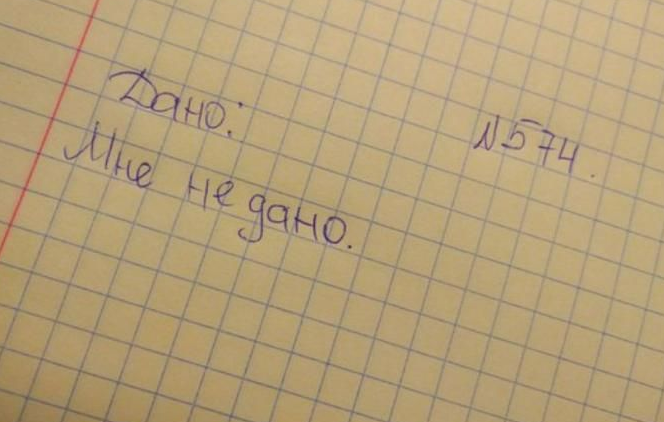 №574.
Дано:
Мне не дано.